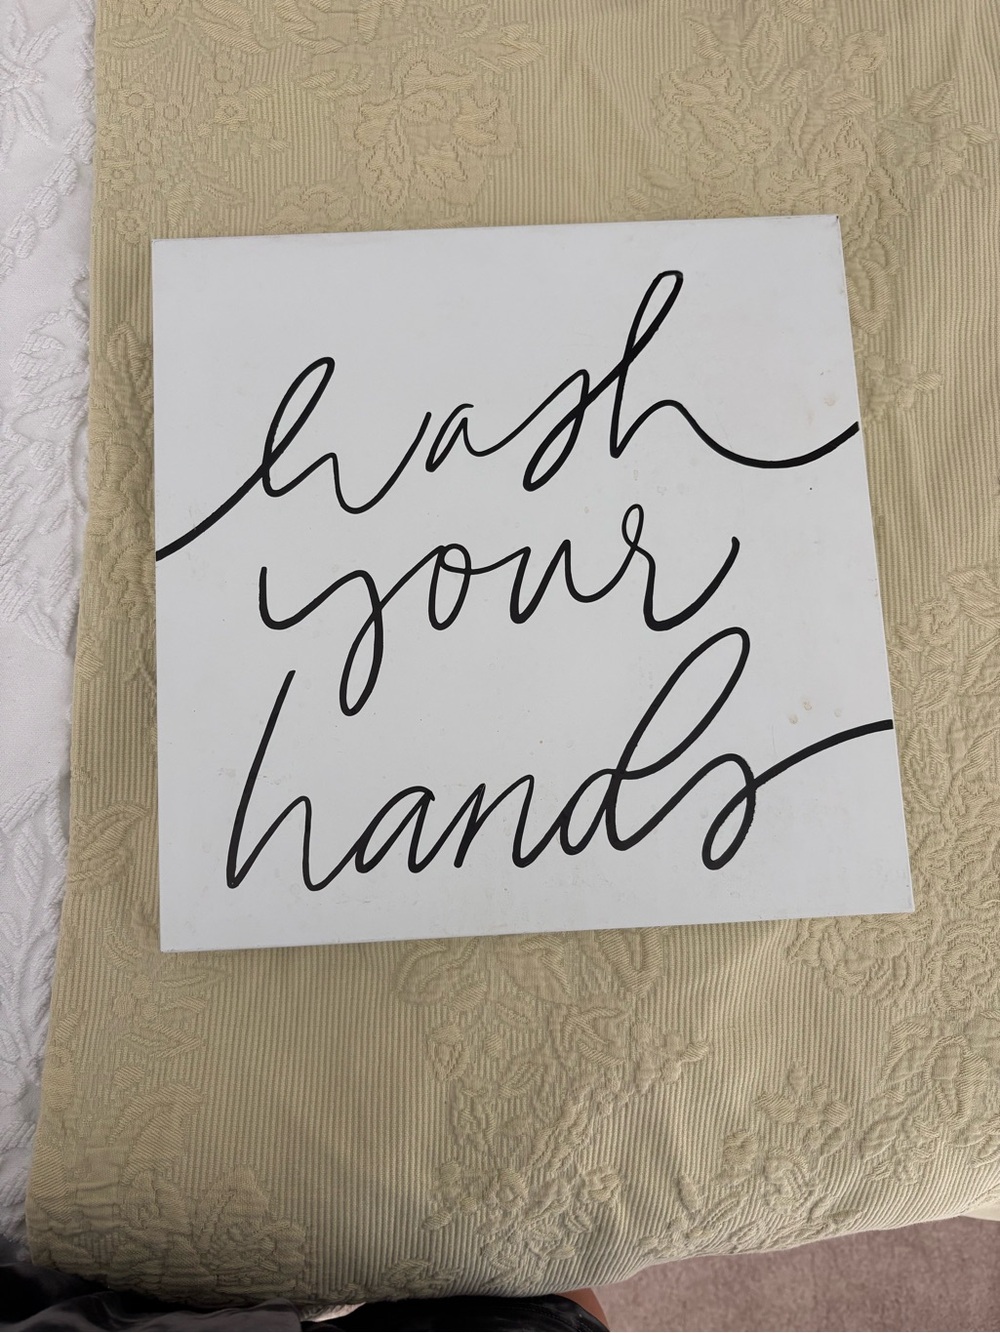 wash
your
hands